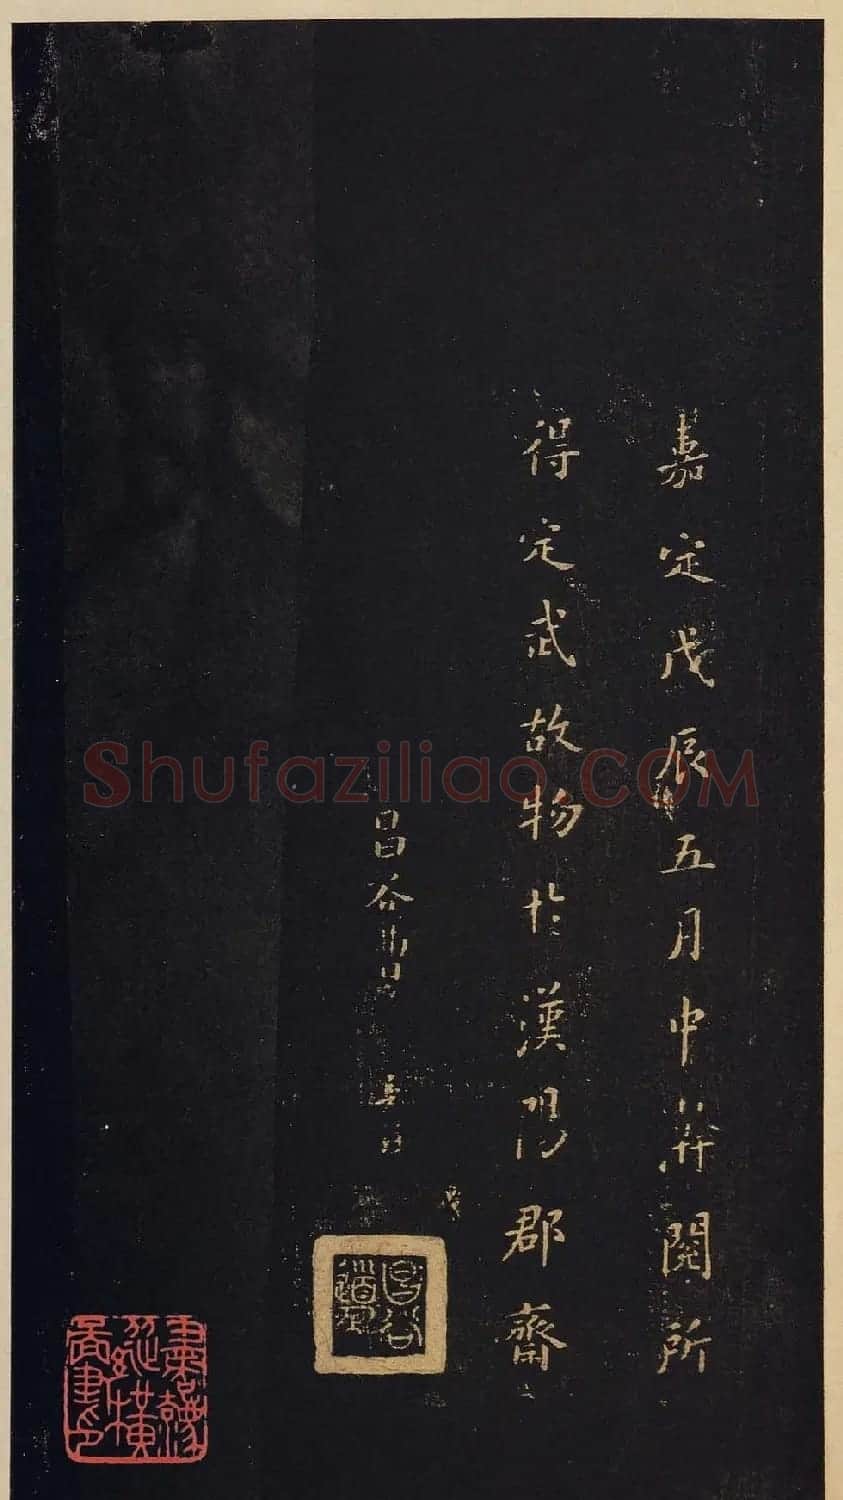 嘉定戊辰五月中葬閱所
得定武故物於漢陽郡齋
昌谷曹
昌谷
Shufaziliao.COM